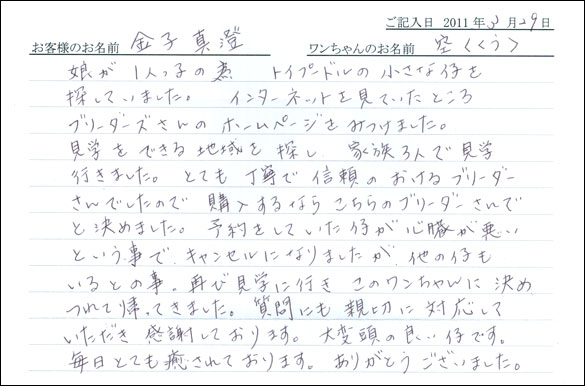 ご記入日 2011年3月29日
お客様のお名前 金子真澄 ワンちゃんのお名前 空〈くう〉
娘が1人っ子の為 トイプードルの小さな仔を
探していました。 インターネットを見ていたところ
ブリーダーズさんのホームページをみつけました。
見学をできる地域を探し 家族3人で見学
行きました。 とても丁寧で信頼のおけるブリーダー
さんでしたので 購入するならこちらのブリーダーさんで
と決めました。 予約をしていた仔が心臓が悪い
という事で キャンセルになりましたが 他の仔も
いるとの事。再び見学に行き このワンちゃんに決め
つれて帰ってきました。 質問にも親切に対応して
いただき 感謝しております。 大変頭の良い仔です。
毎日とても癒されております。 ありがとうございました。